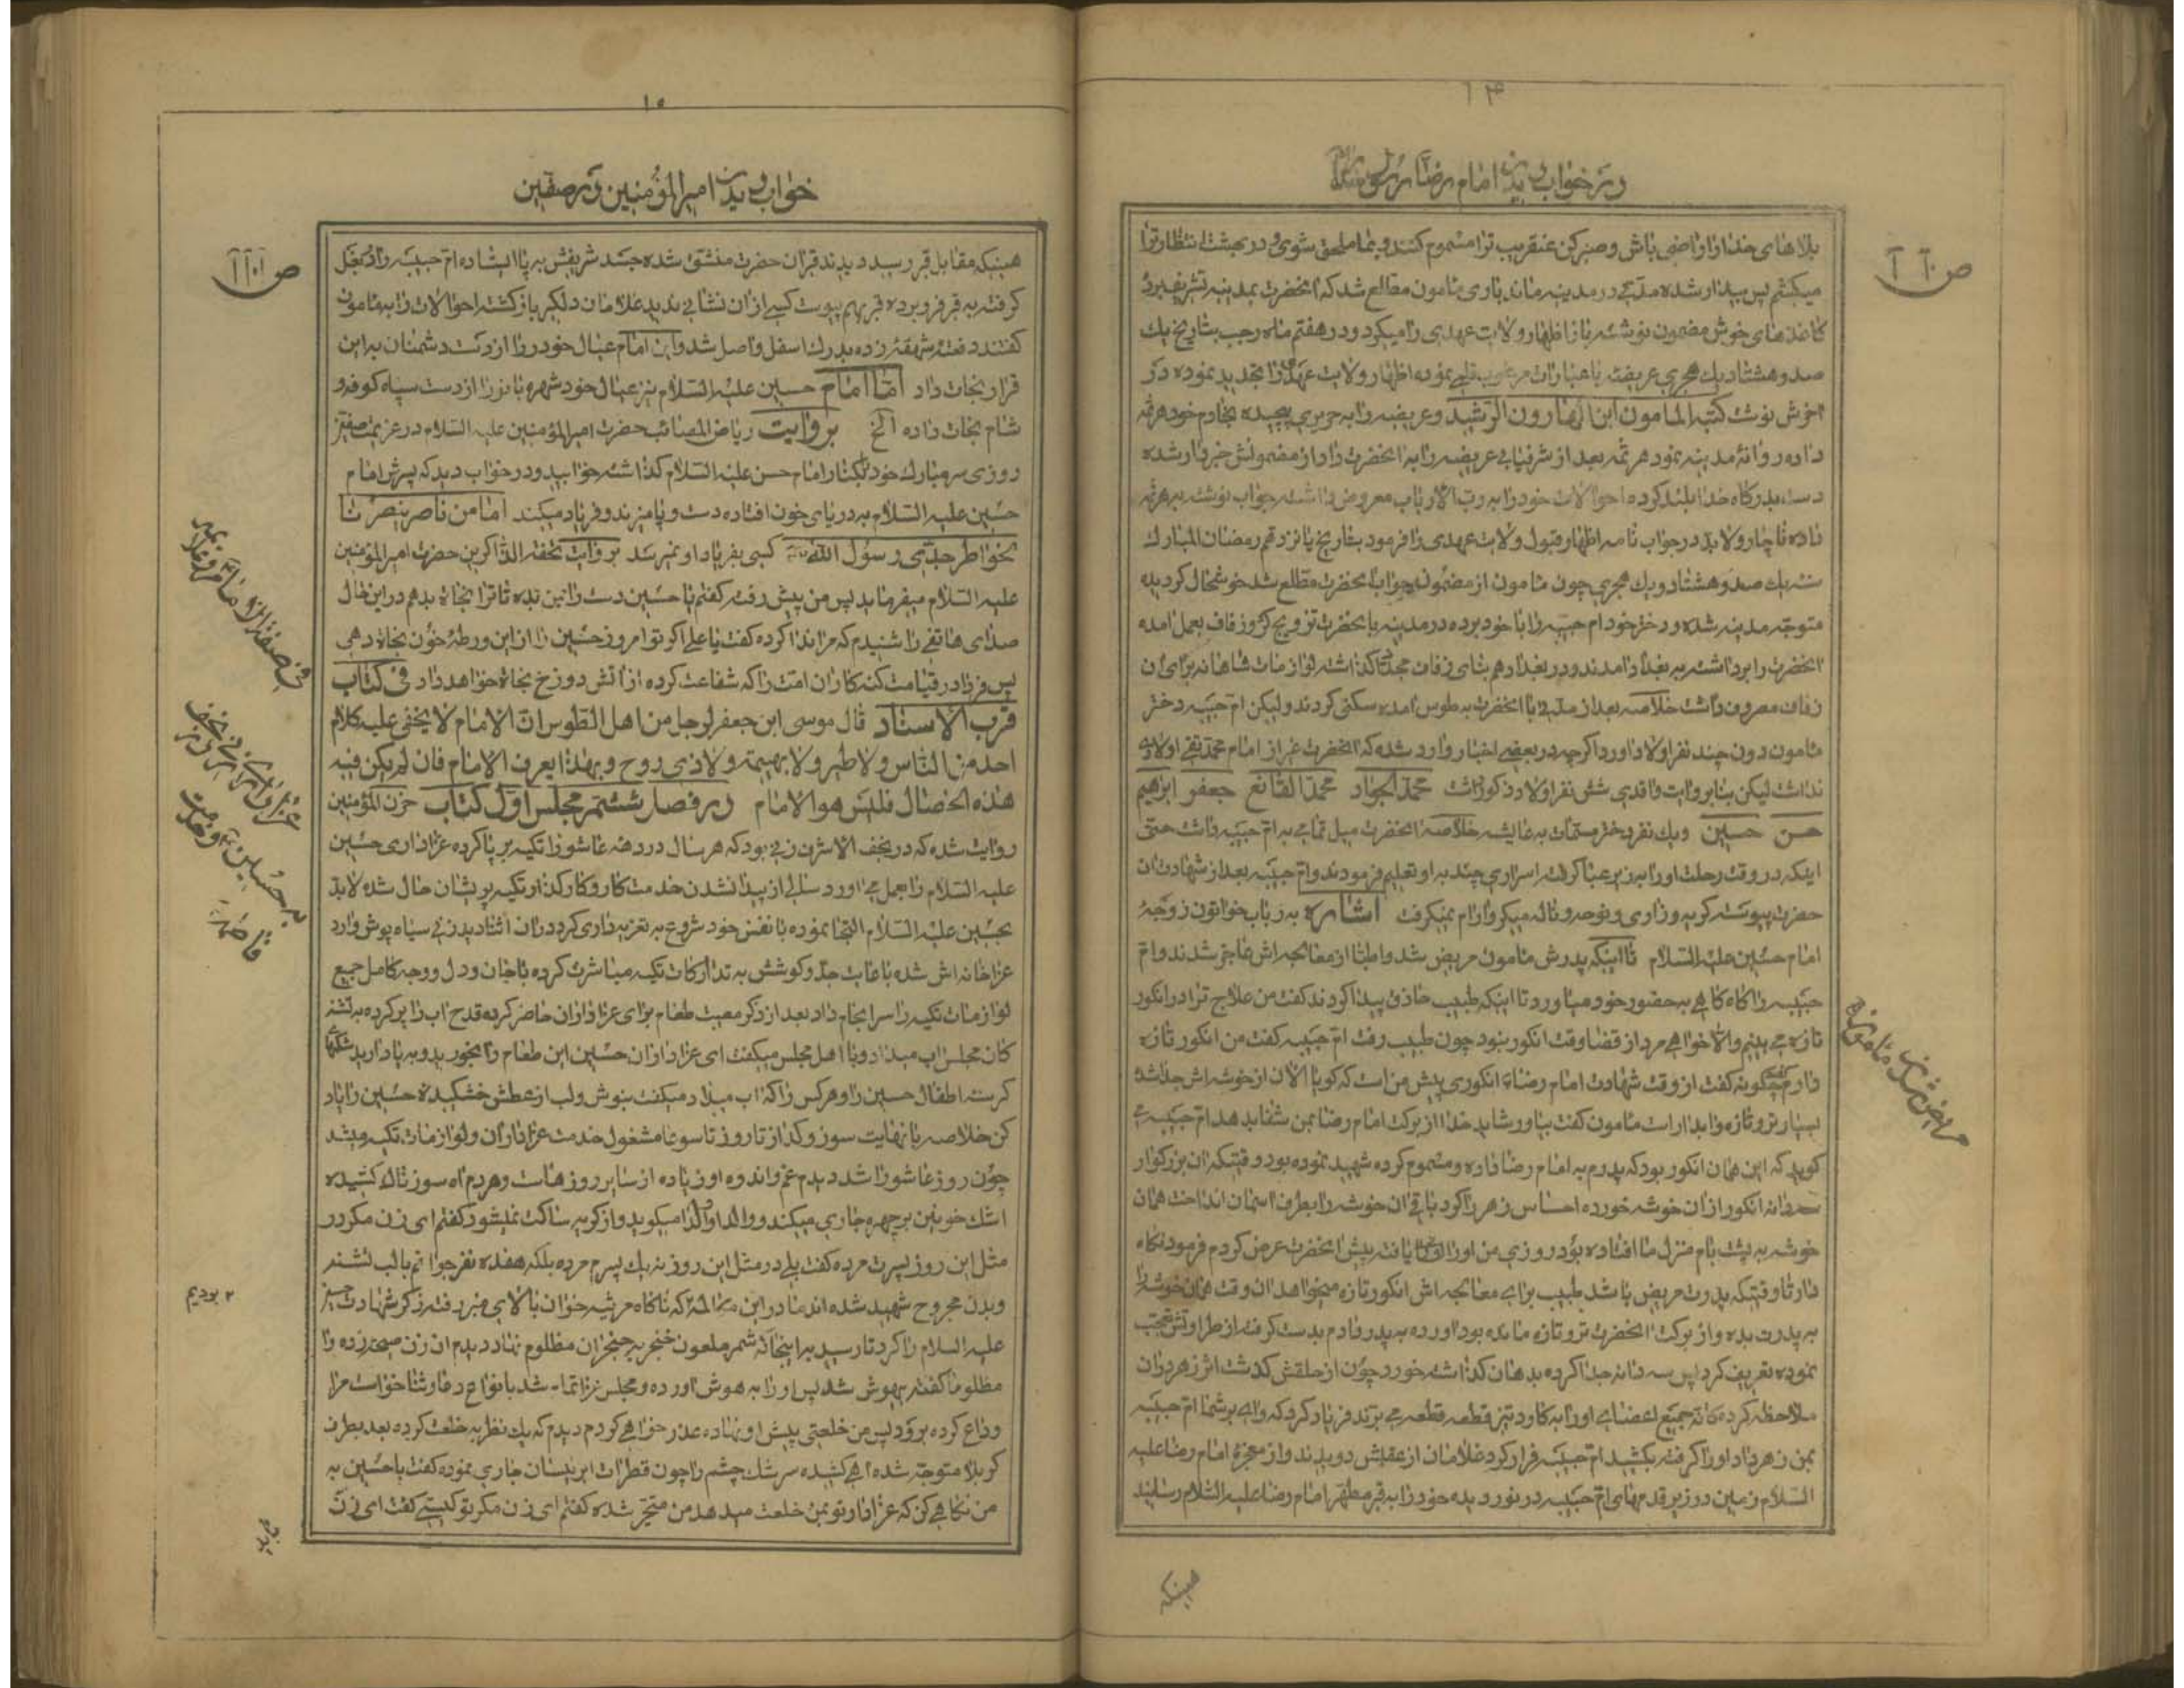 ۱۴
در خواب دیدن امام رضا رسول
بلاهای خدا را راضی باش و صبر کن عنقریب ترا مسموم کنند و بما ملحق شوی و در بهشت انتظار ترا
میکشم پس بیدار شده مدتی در مدینه ماند باری مامون مطلع شد که آنحضرت بمدینه تشریف برد
کاغذهای خوش مضمون نوشته باز اظهار ولایت عهدی را میکرد و در هفتم ماه رجب بتاریخ یک
صد و هشتاد یک هجری عریضه با عبارات مرغوب قلمی نموده اظهار ولایت عهد را تجدید نموده در
آخرش نوشت کتبه المامون ابن الهارون الرشید و عریضه را به حریری پیچیده بخادم خود هرثمه
داده روانۀ مدینه نمود هرثمه بعد از شرفیابی عریضه را به آنحضرت داد از مضمونش خبردار شده
دست بدرگاه خدا بلند کرده احوالات خود را به رب الارباب معروض داشته جواب نوشته به هرثمه
داده ناچار و لابد در جواب نامه اظهار قبول ولایت عهدی را فرمود بتاریخ پانزدهم رمضان المبارک
سنه یک صد و هشتاد و یک هجری چون مامون از مضمون جواب آنحضرت مطلع شد خوشحال گردیده
متوجه مدینه شده و دختر خود ام حبیبه را با خود برده در مدینه با آنحضرت تزویج کرد زفاف بعمل آمده
آنحضرت را برداشته به بغداد آمدند و در بغداد هم بنای زفاف مجدد گذاشته لوازمات شاهانه برای آن
زفاف مصروف داشت خلاصه بعد از مدتی با آنحضرت به طوس آمده سکنی کردند ولیکن ام حبیبه دختر
مامون دون چند نفر اولاد آورد اگرچه در بعضی اخبار وارد شده که آنحضرت غیر از امام محمد تقی اولادی
نداشت لیکن بنا بروایت واقدی شش نفر اولاد ذکور داشت محمد الجواد محمد القانع جعفر ابراهیم
حسن حسین و یک نفر دختر مسمات به عایشه خلاصه آنحضرت میل تمامی به ام حبیبه داشت حتی
اینکه در وقت رحلت او را به زیر عبا گرفته اسراری چند به او تعلیم فرمودند و ام حبیبه بعد از شهادت آن
حضرت پیوسته گریه و زاری و نوحه و ناله میکرد آرام نمیگرفت اشاره به رباب خواتون زوجۀ
امام حسین علیه السلام تا اینکه پدرش مامون مریض شد و اطبا از معالجه اش عاجز شدند و ام
حبیبه را گاه گاهی به حضور خود میآورد تا اینکه طبیب حاذق پیدا کردند گفت من علاج ترا در انگور
تازه می بینم والا خواهی مرد از قضا وقت انگور نبود چون طبیب رفت ام حبیبه گفت من انگور تازه
دارم گفت چگونه گفت از وقت شهادت امام رضا انگوری پیش من است که گویا الان از خوشه اش جدا شده
بسیار تر و تازه و آبدار است مامون گفت بیاور شاید خدا از برکت امام رضا بمن شفا بدهد ام حبیبه می
گوید که این همان انگور بود که پدرم به امام رضا داده و مسموم کرده شهید نموده بود وقتیکه آن بزرگوار
سه دانه انگور از آن خوشه خورده احساس زهر را کرد باقی آن خوشه را بطرف آسمان انداخت همان
خوشه به پشت بام منزل ما افتاده بود روزی من او را یافته پیش آنحضرت عرض کردم فرمود نگاه
دار تا وقتیکه پدرت مریض باشد طبیب برای معالجه اش انگور تازه میخواهد آن وقت همان خوشه را
به پدرت بده و از برکت آنحضرت تر و تازه مانده بود آورده به پدر دادم بدست گرفته از طراوتش تعجب
نموده تعریف کرد پس سه دانه جدا کرده بدهان گذاشته خورد چون از حلقش گذشت اثر زهر در آن
ملاحظه کرده گانه جمیع اعضای او را به کارد تیز قطعه قطعه می برند فریاد کرد که وای بر شما ام حبیبه
بمن زهر داد او را گرفته بکشید ام حبیبه فرار کرد غلامان از عقبش دویدند و از معجزۀ امام رضا علیه
السلام زمین در زیر قدمهای ام حبیبه در نوردیده خود را به قبر مطهر امام رضا علیه السلام رسانید
همینکه
مریض شدن مامون
۱۵
خواب دیدن امیرالمؤمنین در صفین
همینکه مقابل قبر رسید دیدند قبر آن حضرت منشق شده جسد شریفش به پا ایستاده ام حبیبه را در بغل
گرفته به قبر فرو برده قبر بهم پیوست کسی از آن نشانی ندید غلامان دلگیر بازگشته احوالات را به مامون
گفتند دفعتا شهقه زده بدرک اسفل واصل شد و این امام عیال خود را از دست دشمنان به این
قرار نجات داد اما امام حسین علیه السلام نیز عیال خود شهربانو را از دست سپاه کوفه و
شام نجات داده الخ بروایت ریاض المصائب حضرت امیرالمؤمنین علیه السلام در عزیمت صفین
روزی سر مبارک خود بکنار امام حسن علیه السلام گذاشته خوابید و در خواب دید که پسرش امام
حسین علیه السلام به دریای خون افتاده دست و پا میزند و فریاد میکند اما من ناصر ینصرنا
بخواطر جدی رسول الله کسی بفریاد او نمیرسد بروایت تحفة الذاکرین حضرت امیرالمؤمنین
علیه السلام میفرماید پس من پیش رفته گفتم یا حسین دست را بمن بده تا ترا نجات بدهم در این حال
صدای هاتفی را شنیدم که مرا ندا کرده گفت یا علی اگر تو امروز حسین را از این ورطۀ خون نجات دهی
پس فردا در قیامت گنه کاران امت را که شفاعت کرده از آتش دوزخ نجات خواهد داد فی کتاب
قرب الاسناد قال موسی ابن جعفر لرجل من اهل الطوس ان الامام لا یخفی علیه کلام
احد من الناس ولا طیر ولا بهیمة ولا ذی روح و بهذا یعرف الامام فان لم یکن فیه
هذه الخصال فلیس هو الامام در فصل ششم مجلس اول کتاب حزن المؤمنین
روایت شده که در نجف الاشرف زنی بود که هر سال در دهه عاشورا تکیه برپا کرده عزاداری حسین
علیه السلام را بعمل می آورد سالی از پیدا نشدن خدمت کار و کارکذار تکیه پریشان حال شده لابد
بحسین علیه السلام التجا نموده با نفس خود شروع به تعزیه داری کرد در آن اثنا دید زنی سیاه پوش وارد
عزاخانه اش شده با غایت جد و کوشش به تدارکات تکیه مباشرت کرده با جان و دل و وجه کامل جمیع
لوازمات تکیه را سرانجام داد بعد از ذکر مصیبت طعام برای عزاداران حاضر کرده قدح آب را پر کرده به تشنه
گان مجلس آب میداد و با اهل مجلس میگفت ای عزاداران حسین این طعام را بخورید و به یاد آرید شکمهای
گرسنه اطفال حسین را و هر کس را که آب میداد میگفت بنوش و لب از عطش خشکیده حسین را یاد
کن خلاصه با نهایت سوز و گداز تا روز تاسوعا مشغول خدمت عزاداران و لوازمات تکیه میشد
چون روز عاشورا شد دیدم غم و اندوه او زیاده از سایر روزهاست و هر دم آه سوزناک کشیده
اشک خونین بر چهره جاری میکند و والدا والدا میگوید و از گریه ساکت نمیشود گفتم ای زن مگر در
مثل این روز پسرت مرده گفت بلی در مثل این روز نه یک پسرم مرده بلکه هفده نفر جوانم با لب تشنه
و بدن مجروح شهید شده اند ما در این مکالمه که ناگاه مرثیه خوان بالای منبر رفته ذکر شهادت حسین
علیه السلام را کرد تا رسید به اینجا که شمر ملعون خنجر به حنجر آن مظلوم نهاد دیدم آن زن صیحه زده وا
مظلوما گفته بیهوش شد پس او را به هوش آورده و مجلس عزا تمام شد بانواع دعا و ثنا خواست مرا
وداع کرده برود پس من خلعتی پیش او نهاده عذر خواهی کردم دیدم که یک نظر به خلعت کرده بعد بطرف
کربلا متوجه شده آهی کشیده سرشک چشم را چون قطرات ابر نیسان جاری نموده گفت یا حسین به
من نگاهی کن که عزادار تو بمن خلعت میدهد من متحیر شده گفتم ای زن مگر تو کیستی گفت ای زن
۲ بودیم